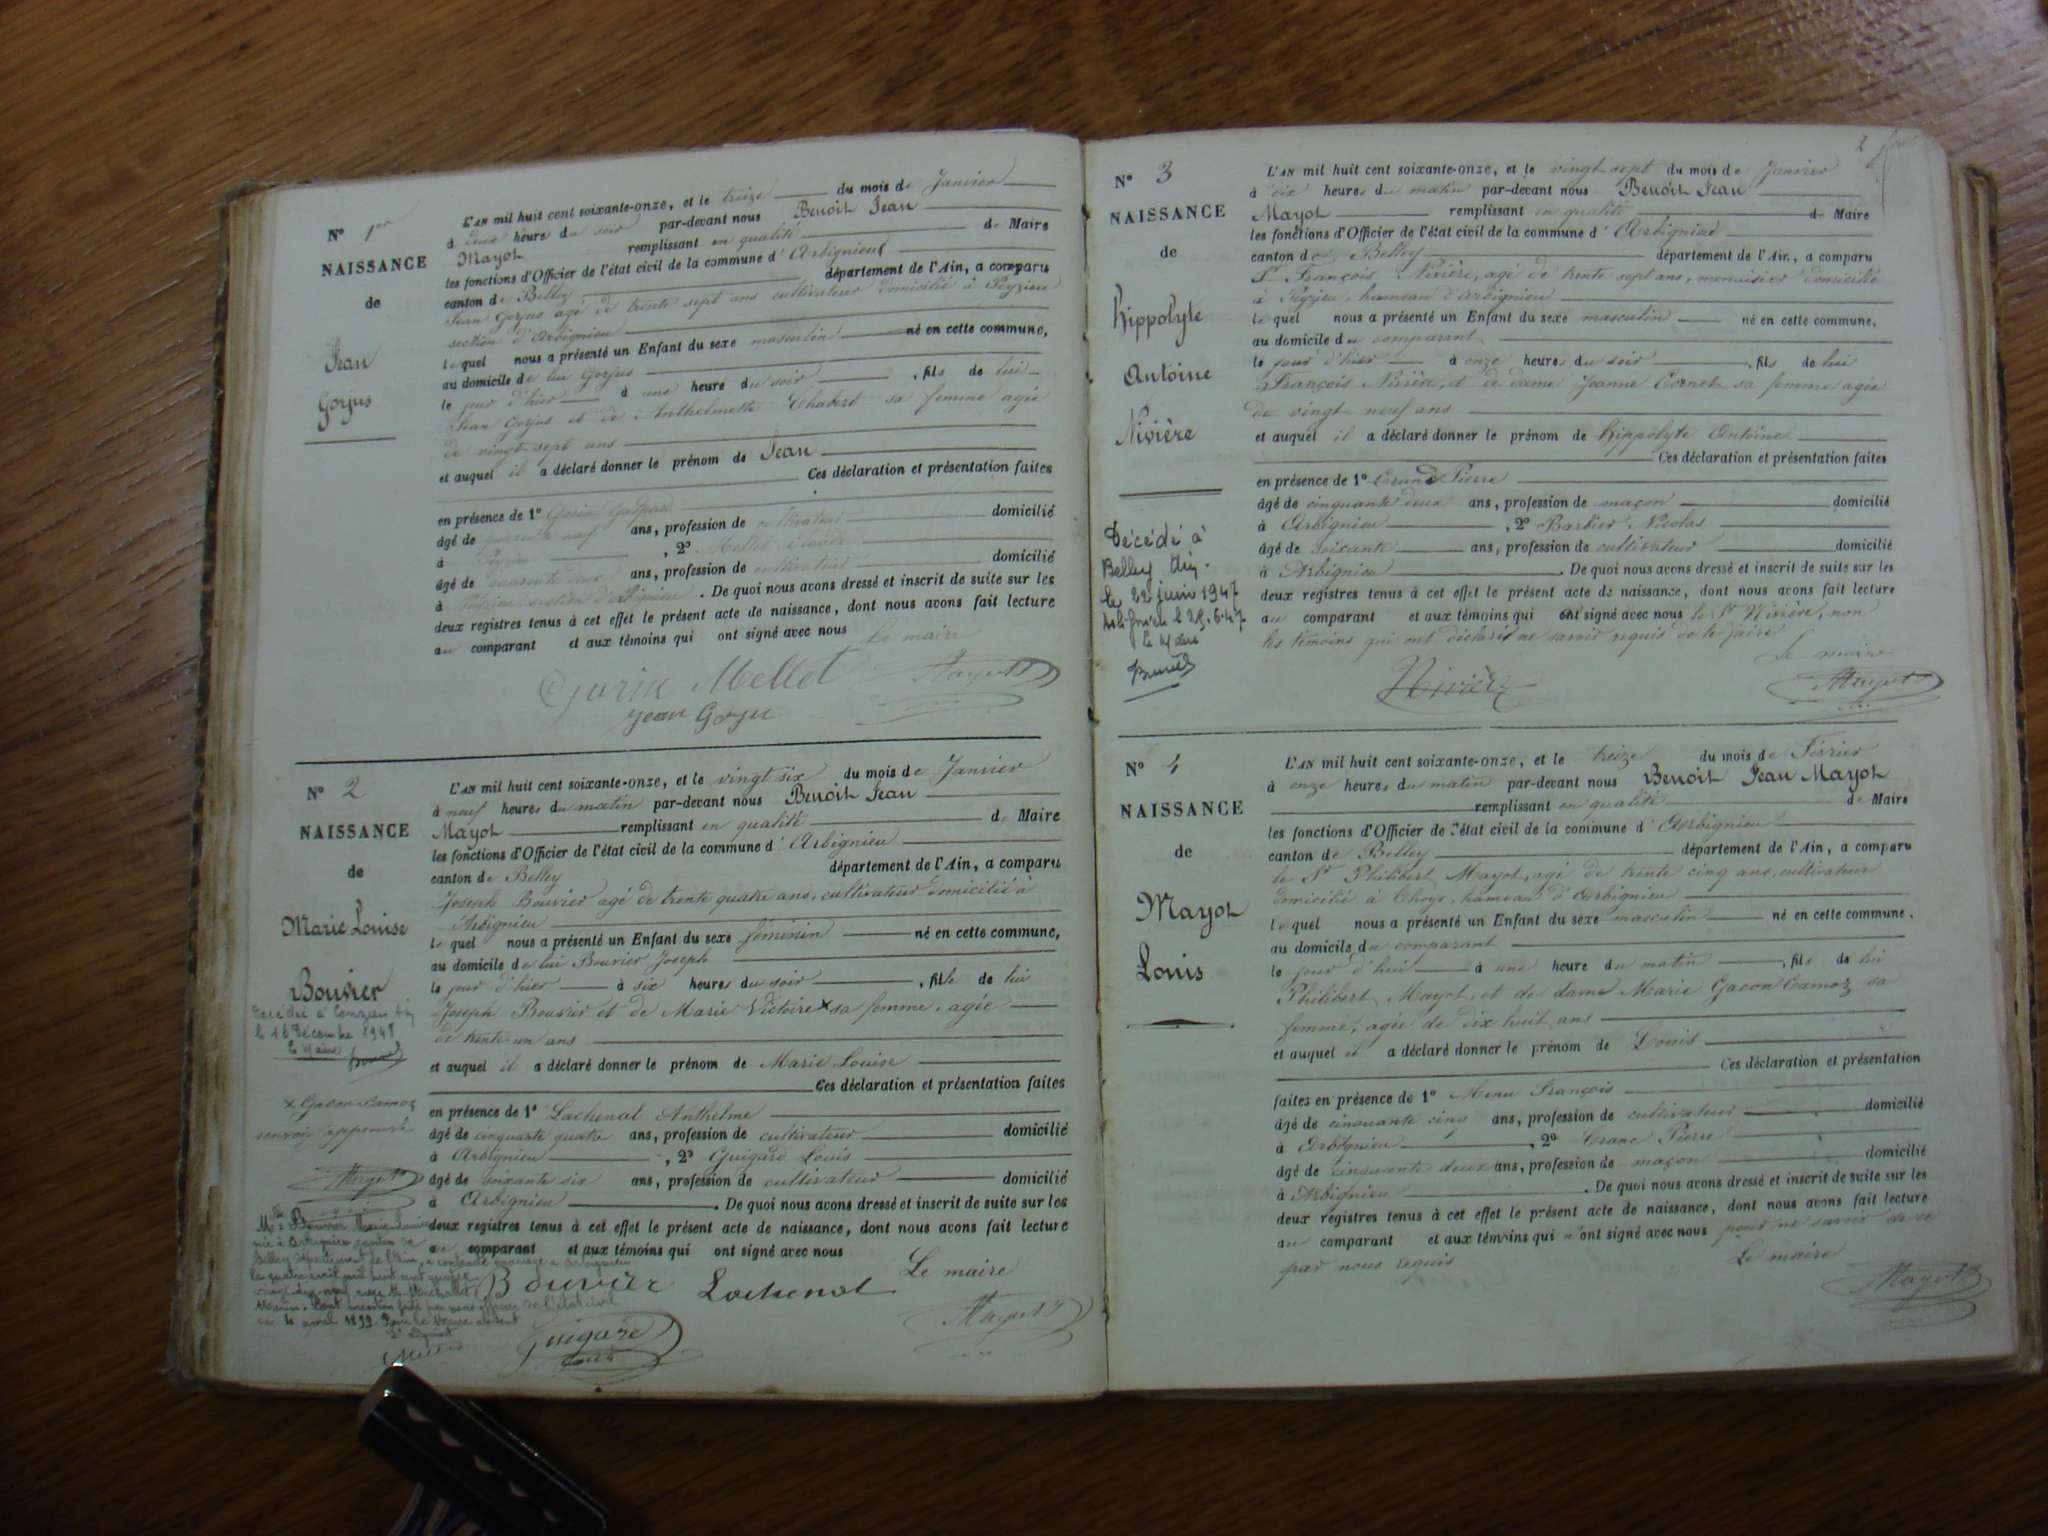 N° 1er
NAISSANCE
de
Jean
Gorjus
L'AN mil huit cent soixante-onze, et le treize du mois de Janvier
à deux heure du soir par-devant nous Benoit Jean
Mayot remplissant en qualité de Maire
les fonctions d'Officier de l'état civil de la commune d'Arbignieu
canton de Belley département de l'Ain, a comparu
Jean Gorjus agé de trente sept ans cultivateur domicilié à Peyzieu
section d'Arbignieu
lequel nous a présenté un Enfant du sexe masculin né en cette commune,
au domicile de lui Gorjus
le jour d'hier à une heure du soir, fils de lui
Jean Gorjus et de Anthelmette Chabert sa femme agée
de vingt sept ans
et auquel il a déclaré donner le prénom de Jean
Ces déclaration et présentation faites
en présence de 1° Garin Gaspard
âgé de quarante neuf ans, profession de cultivateur domicilié
à Peyzieu, 2° Mellet
âgé de quarante deux ans, profession de cultivateur domicilié
à Peyzieu section d'Arbignieu. De quoi nous avons dressé et inscrit de suite sur les
deux registres tenus à cet effet le présent acte de naissance, dont nous avons fait lecture
au comparant et aux témoins qui ont signé avec nous Le maire
Garin Mellet Mayot
Jean Gorju
N° 2
NAISSANCE
de
Marie Louise
Bouvier
Décédée à
le 16 Décembre 1948
Le Maire
x Gacon-Camoz
renvoi approuvé
Mayot
L'AN mil huit cent soixante-onze, et le vingt six du mois de Janvier
à neuf heures du matin par-devant nous Benoit Jean
Mayot remplissant en qualité de Maire
les fonctions d'Officier de l'état civil de la commune d'Arbignieu
canton de Belley département de l'Ain, a comparu
Joseph Bouvier agé de trente quatre ans, cultivateur domicilié à
Arbignieu
lequel nous a présenté un Enfant du sexe féminin né en cette commune,
au domicile de lui Bouvier Joseph
le jour d'hier à six heures du soir, fille de lui
Joseph Bouvier et de Marie Victoire x sa femme, agée
de trente-un ans
et auquel il a déclaré donner le prénom de Marie Louise
Ces déclaration et présentation faites
en présence de 1° Lachenal Anthelme
âgé de cinquante quatre ans, profession de cultivateur domicilié
à Arbignieu, 2° Guigard Louis
âgé de soixante six ans, profession de cultivateur domicilié
à Arbignieu. De quoi nous avons dressé et inscrit de suite sur les
deux registres tenus à cet effet le présent acte de naissance, dont nous avons fait lecture
au comparant et aux témoins qui ont signé avec nous
Le maire
Bouvier Lachenal Mayot
Guigard
Louis
Bouvier Marie Louise
née à Arbignieu, canton de
Belley département de l'Ain, a contracté mariage à Arbignieu
le quatre avril mil huit cent quatre
vingt-dix-neuf avec M. Michallet
ce 4 avril 1899
N° 3
NAISSANCE
de
Hippolyte
Antoine
Nivière
Décédé à
Belley Ain.
le 22 juin 1947
Le Maire
L'AN mil huit cent soixante-onze, et le vingt sept du mois de Janvier
à dix heures du matin par-devant nous Benoit Jean
Mayot remplissant en qualité de Maire
les fonctions d'Officier de l'état civil de la commune d'Arbignieu
canton de Belley département de l'Ain, a comparu
Sr François Nivière, agé de trente sept ans, menuisier domicilié
à Peyzieu, hameau d'Arbignieu
lequel nous a présenté un Enfant du sexe masculin né en cette commune,
au domicile du comparant
le jour d'hier à onze heures du soir, fils de lui
François Nivière, et de dame Jeanne Cornet sa femme agée
de vingt neuf ans
et auquel il a déclaré donner le prénom de Hippolyte Antoine
Ces déclaration et présentation faites
en présence de 1° Pierre
âgé de cinquante deux ans, profession de maçon domicilié
à Arbignieu, 2° Barbier Nicolas
âgé de soixante ans, profession de cultivateur domicilié
à Arbignieu. De quoi nous avons dressé et inscrit de suite sur les
deux registres tenus à cet effet le présent acte de naissance, dont nous avons fait lecture
au comparant et aux témoins qui ont signé avec nous le Sr Nivière, non
les témoins qui ont déclaré ne savoir requis de le faire
Le maire
Nivière Mayot
N° 4
NAISSANCE
de
Mayot
Louis
L'AN mil huit cent soixante-onze, et le treize du mois de Février
à onze heures du matin par-devant nous Benoit Jean Mayot
remplissant en qualité de Maire
les fonctions d'Officier de l'état civil de la commune d'Arbignieu
canton de Belley département de l'Ain, a comparu
le Sr Philibert Mayot, agé de trente cinq ans, cultivateur
domicilié à Thoys, hameau d'Arbignieu
lequel nous a présenté un Enfant du sexe masculin né en cette commune,
au domicile du comparant
le jour d'hui à une heure du matin, fils de lui
Philibert Mayot, et de dame Marie Gacon Camoz sa
femme, agée de dix huit ans
et auquel il a déclaré donner le prénom de Louis
Ces déclaration et présentation
faites en présence de 1° Menu François
âgé de cinquante cinq ans, profession de cultivateur domicilié
à Arbignieu, 2° Pierre
âgé de cinquante deux ans, profession de maçon domicilié
à Arbignieu. De quoi nous avons dressé et inscrit de suite sur les
deux registres tenus à cet effet le présent acte de naissance, dont nous avons fait lecture
au comparant et aux témoins qui n'ont signé avec nous pour ne savoir de ce
par nous requis Le maire
Mayot